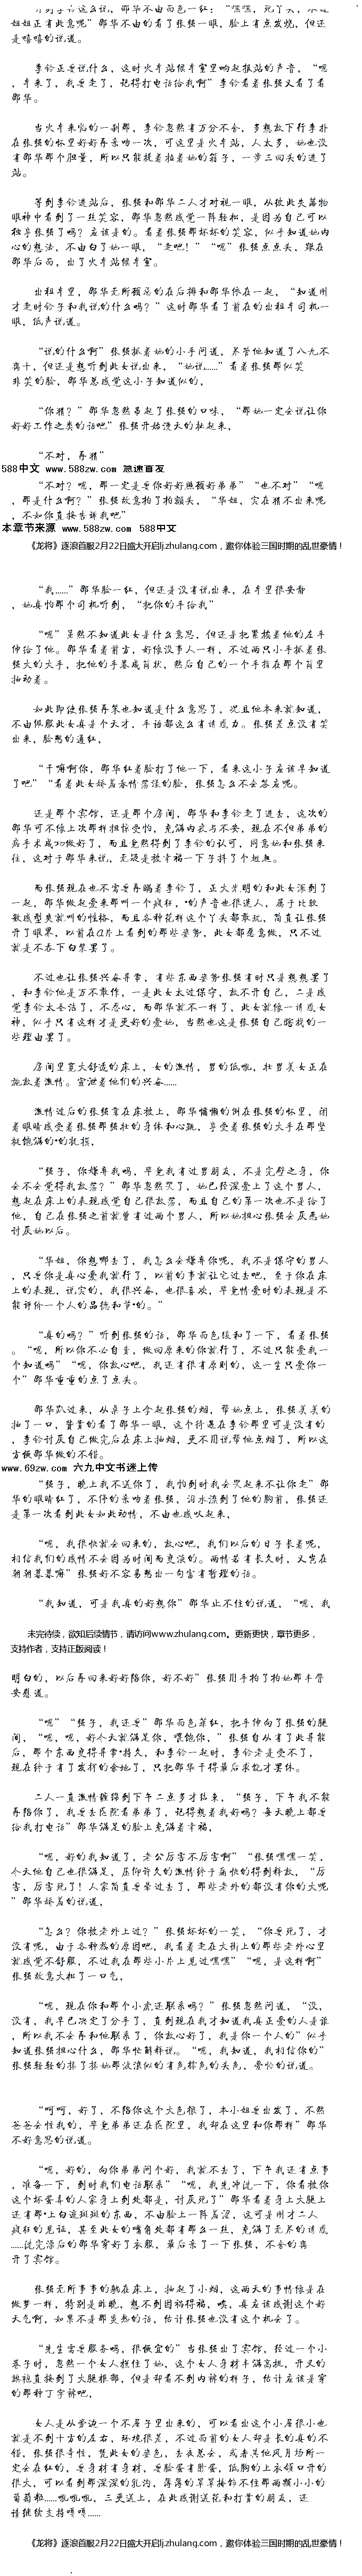 姐姐正有此意呢”邵华不由的看了张强一眼，脸上有点发烧，但还
是嘻嘻的说道。
李铃正要说什么，这时火车站候车室里响起报站的声音，“嗯
，车来了，我要走了，记得打电话给我啊”李铃看着张强又看了看
邵华。
当火车来临的一刹那，李铃忽然有万分不舍，多想放下行李扑
在张强的怀里好好再亲吻一次，可这里是火车站，人太多，她也没
有邵华那个胆量，所以只能提着拉着她的箱子，一步三回头的进了
站。
等到李铃进站后，张强和邵华二人才对视一眼，从彼此失落的
眼神中看到了一丝笑容，邵华忽然感觉一阵轻松，是因为自己可以
独享张强了吗？应该是的。看着张强那坏坏的笑容，似乎知道她内
心的想法，不由白了她一眼，“走吧！”“嗯”张强点点头，跟在
邵华后面，出了火车站候车室。
出租车里，邵华无所顾忌的在后排和邵华依在一起，“知道刚
才走时铃子和我说的什么吗？”这时邵华看了前在的出租车司机一
眼，低声说道。
“说的什么啊”张强抓着她的小手问道，尽管他知道了八九不
离十，但还是想听到此女说出来，“她说……”看着张强那似笑
非笑的脸，邵华总感觉这小子知道似的，
“你猜？”邵华忽然吊起了张强的口味，“那她一定会说让你
好好工作之类的话吧”张强开始漫天的扯起来，
“不对，再猜”
588中文 www.588zw.com 急速首发
“不对？嗯，那一定是要你好好照顾好弟弟”“也不对”“嗯
，那是什么啊？”张强故意拍了拍额头，“华姐，实在猜不出来呢
，不如你直接告诉我吧”
本章节来源 www.588zw.com 588中文
《龙将》逐浪首服2月22日盛大开启lj.zhulang.com，邀你体验三国时期的乱世豪情！
“我……”邵华脸一红，但还是没有说出来，在车里很安静
，她真怕那个司机听到，“把你的手给我”
“嗯”虽然不知道此女是什么意思，但还是把紧搂着他的左手
伸给了他。邵华看着前方，好像没事人一样，不过两只小手抓着张
强大的大手，把他的手卷成筒状，然后自己的一个手指在那个筒里
抽动着。
如此即使张强再笨也知道是什么意思了，况且他本来就知道，
不由佩服此女真是个天才，手语都这么有诱惑力。张强差点没有笑
出来，脸憋的通红，
“干嘛啊你，邵华红着脸打了他一下，看来这小子应该早知道
了吧”“看着此女娇羞春情荡漾的脸，张强怎么不会答应呢。
还是那个宾馆，还是那个房间，邵华和李铃走了进去，这次的
邵华可不像上次那样担惊受怕，充满内疚与不安，现在不但弟弟的
病手术成功做好了，而且竟然得到了李铃的认可，同意她和张强来
往，这对于邵华来说，无疑是被幸福一下子抖了个趔趄。
而张强现在也不需要再瞒着李铃了，正大光明的和此女滚到了
一起，邵华做起爱来那叫一个疯狂，·的声音也很迷人，属于比较
敏感型爽就叫的性格，而且各种花样这个丫头都敢玩，简直让张强
开了眼界，以前在a片上看到的那些姿势，此女都愿意做，只不过
就是不吞下白浆罢了。
不过也让张强兴奋异常，有些东西姿势张强有时只是想想罢了
，和李铃他是万不敢作，一是此女太过保守，放不开自己，二是感
觉李铃太圣洁了，不忍心，而邵华就不一样了，此女就像一诱惑女
神，似乎只有这样才是更好的爱她，当然也这是张强自己瞎找的一
些理由罢了。
房间里宽大舒适的床上，女的激情，男的低吼，壮男美女正在
施放着激情。宣泄着他们的兴奋……
激情过后的张强坐在床被上，邵华慵懒的倒在张强的怀里，闭
着眼睛感受着张强那强壮的身体和心跳，享受着张强的大手在那坚
挺饱满的·的抚摸，
“强子，你嫌弃我吗，毕竟我有过男朋友，不是完璧之身，你
会不会觉得我放荡？”邵华忽然哭了，她已经深爱上了这个男人，
想起在床上的表现感觉自己很放荡，而且自己的第一次也不是给了
他，自己在张强之前就曾有过两个男人，所以她担心张强会厌恶她
讨厌她以后。
“华姐，你想哪去了，我怎么会嫌弃你呢，我不是保守的男人
，只要你是真心爱我就行了，以前的事就让它过去吧，至于你在床
上的表现，说实的，我很兴奋，也很喜欢，毕竟情爱时的表现是不
能评价一个人的品德和节·的。”
“真的吗？”听到张强的话，邵华面色缓和了一下，看着张强
。“嗯，所以你不必自责，做回原来的你就行了，不过只能爱我一
个知道吗”“嗯，你放心吧，我还有很有原则的，这一生只爱你一
个”邵华重重的点了点头。
邵华趴过来，从桌子上拿起张强的烟，帮她点上，张强美美的
抽了一口，赞赏的看了邵华一眼，这个待遇在李铃那里可是没有的
，李铃讨厌自己做完后在床上抽烟，更不用说帮他点烟了，所以这
方面邵华做的不错。
www.69zw.com 六九中文书迷上传
“强子，晚上我不送你了，我怕到时我会哭起来不让你走”邵
华的眼睛红了，不停的亲吻着张强，泪水滴到了他的胸前，张强还
是第一次看到此女如此动情，不由也感叹起来，
“嗯，我很快就会回来的，放心吧，我们以后的日子长着呢，
相信我们的感情不会因为时间而变淡的。两情若有长久时，又岂在
朝朝暮暮嘛”张强好不容易憋出一句富有哲理的话。
“我知道，可是我真的好想你”邵华止不住的说道，“嗯，我
未完待续，欲知后续情节，请访问www.zhulang.com。更新更快，章节更多，
支持作者，支持正版阅读！
明白的，以后再回来好好陪你，好不好”张强用手拍了拍她那丰臀
安慰道。
“嗯”“强子，我还要”邵华面色菜红，把手伸向了张强的腿
间，“嗯，嗯，好小太就满足你，喂饱你，”张强自从有了此异能
后，那个东西变得异常·持久，和李铃一起时，李铃老是受不了，
现在终于有了发挥的余地了，只把邵华干得最后求饶才罢休。
二人一直激情缠绵到下午二点多才结束，“强子，下午我不能
再陪你了，我要去医院看弟弟了，记得想着我好吗？每天晚上都要
给我打电话”邵华满足的脸上充满着幸福，
“嗯，好的我知道了，老公厉害不厉害啊”“张强嘿嘿一笑，
今天他自己也很满足，压抑许久的激情终于痛快的得到释放，“厉
害，厉害死了！人家简直要晕过去了，那些老外的都没有你的大呢
”邵华娇羞的说道，
“怎么？你被老外上过？”张强坏坏的一笑，“你要死了，才
没有呢，由于各种忌的原因吧，我看着走在大街上的那些老外心里
就感觉不舒服，不过我在那些小片上见过嘿嘿”“嗯，是这样啊”
张强故意大松了一口气，
“嗯，现在你和那个小虎还联系吗？”张强忽然问道，“没，
没有，我早已决定了分手了，直到现在我才知道我真正爱的人是谁
，所以我不会再和他联系了，你放心好了，我是你一个人的”似乎
知道张强担心什么，邵华忙解释说。“嗯，我知道，我相信你的”
张强轻轻的搂了搂她那波浪似的有色棕色的头色，爱怜的说道。
“呵呵，好了，不陪你这个大色狼了，本小姐要出发了，不然
爸爸会怪我的，毕竟弟弟还在医院里，我却在这里和你那样”邵华
不好意思的说道。
“嗯，好的，向你弟弟问个好，我就不去了，下午我还有点事
，准备一下，到时我们电话联系”“嗯，我先冲洗一下，你看被你
这个坏蛋弄的人家身上到处都是，讨厌死了”邵华看着身上大腿上
还有那·上白液斑斑的东西，不由脸上一阵羞涩，这可是刚才二人
疯狂的见证，甚至此女的嘴角处都有那么一丝，充满了无尽的诱惑
……洗完澡后的邵华穿好了衣服，最后亲了一下张强，不舍的离
开了宾馆。
张强无所事事的躺在床上，抽起了小烟，这两天的事情像是在
做梦一样，特别是昨晚，想不到因祸得福，唉，真应该感谢这个好
天气啊，如果不是那炎热的话，估计张强也没有这个机会了。
“先生需要服务吗，很便宜的”当张强出了宾馆，经过一个小
巷子时，忽然一个女人探住了她，这个女人身材丰满高挑，开叉的
旗袍直接到了大腿根部，但是却看不到内裤的样子，估计应该是穿
的那种丁字裤吧，
女人是从旁边一个不屋子里出来的，可以看出这个小屋很小也
就是不到十方的左右，环境很差，不过面前的女人却是长的真的不
错，张强很奇怪，凭此女的姿色，去夜总会，或者其他风月场所一
定会在红的，要身材有身材，要脸蛋有脸蛋，低胸的上衣领口开的
很大，可以看到那深深的乳沟，薄薄的罩罩接饰不住那两颗小小的
葡萄粒……吼吼吼，三更送上，在此感谢送花和打赏的朋友，还
请继续支持嘎嘎……
《龙将》逐浪首服2月22日盛大开启lj.zhulang.com，邀你体验三国时期的乱世豪情！